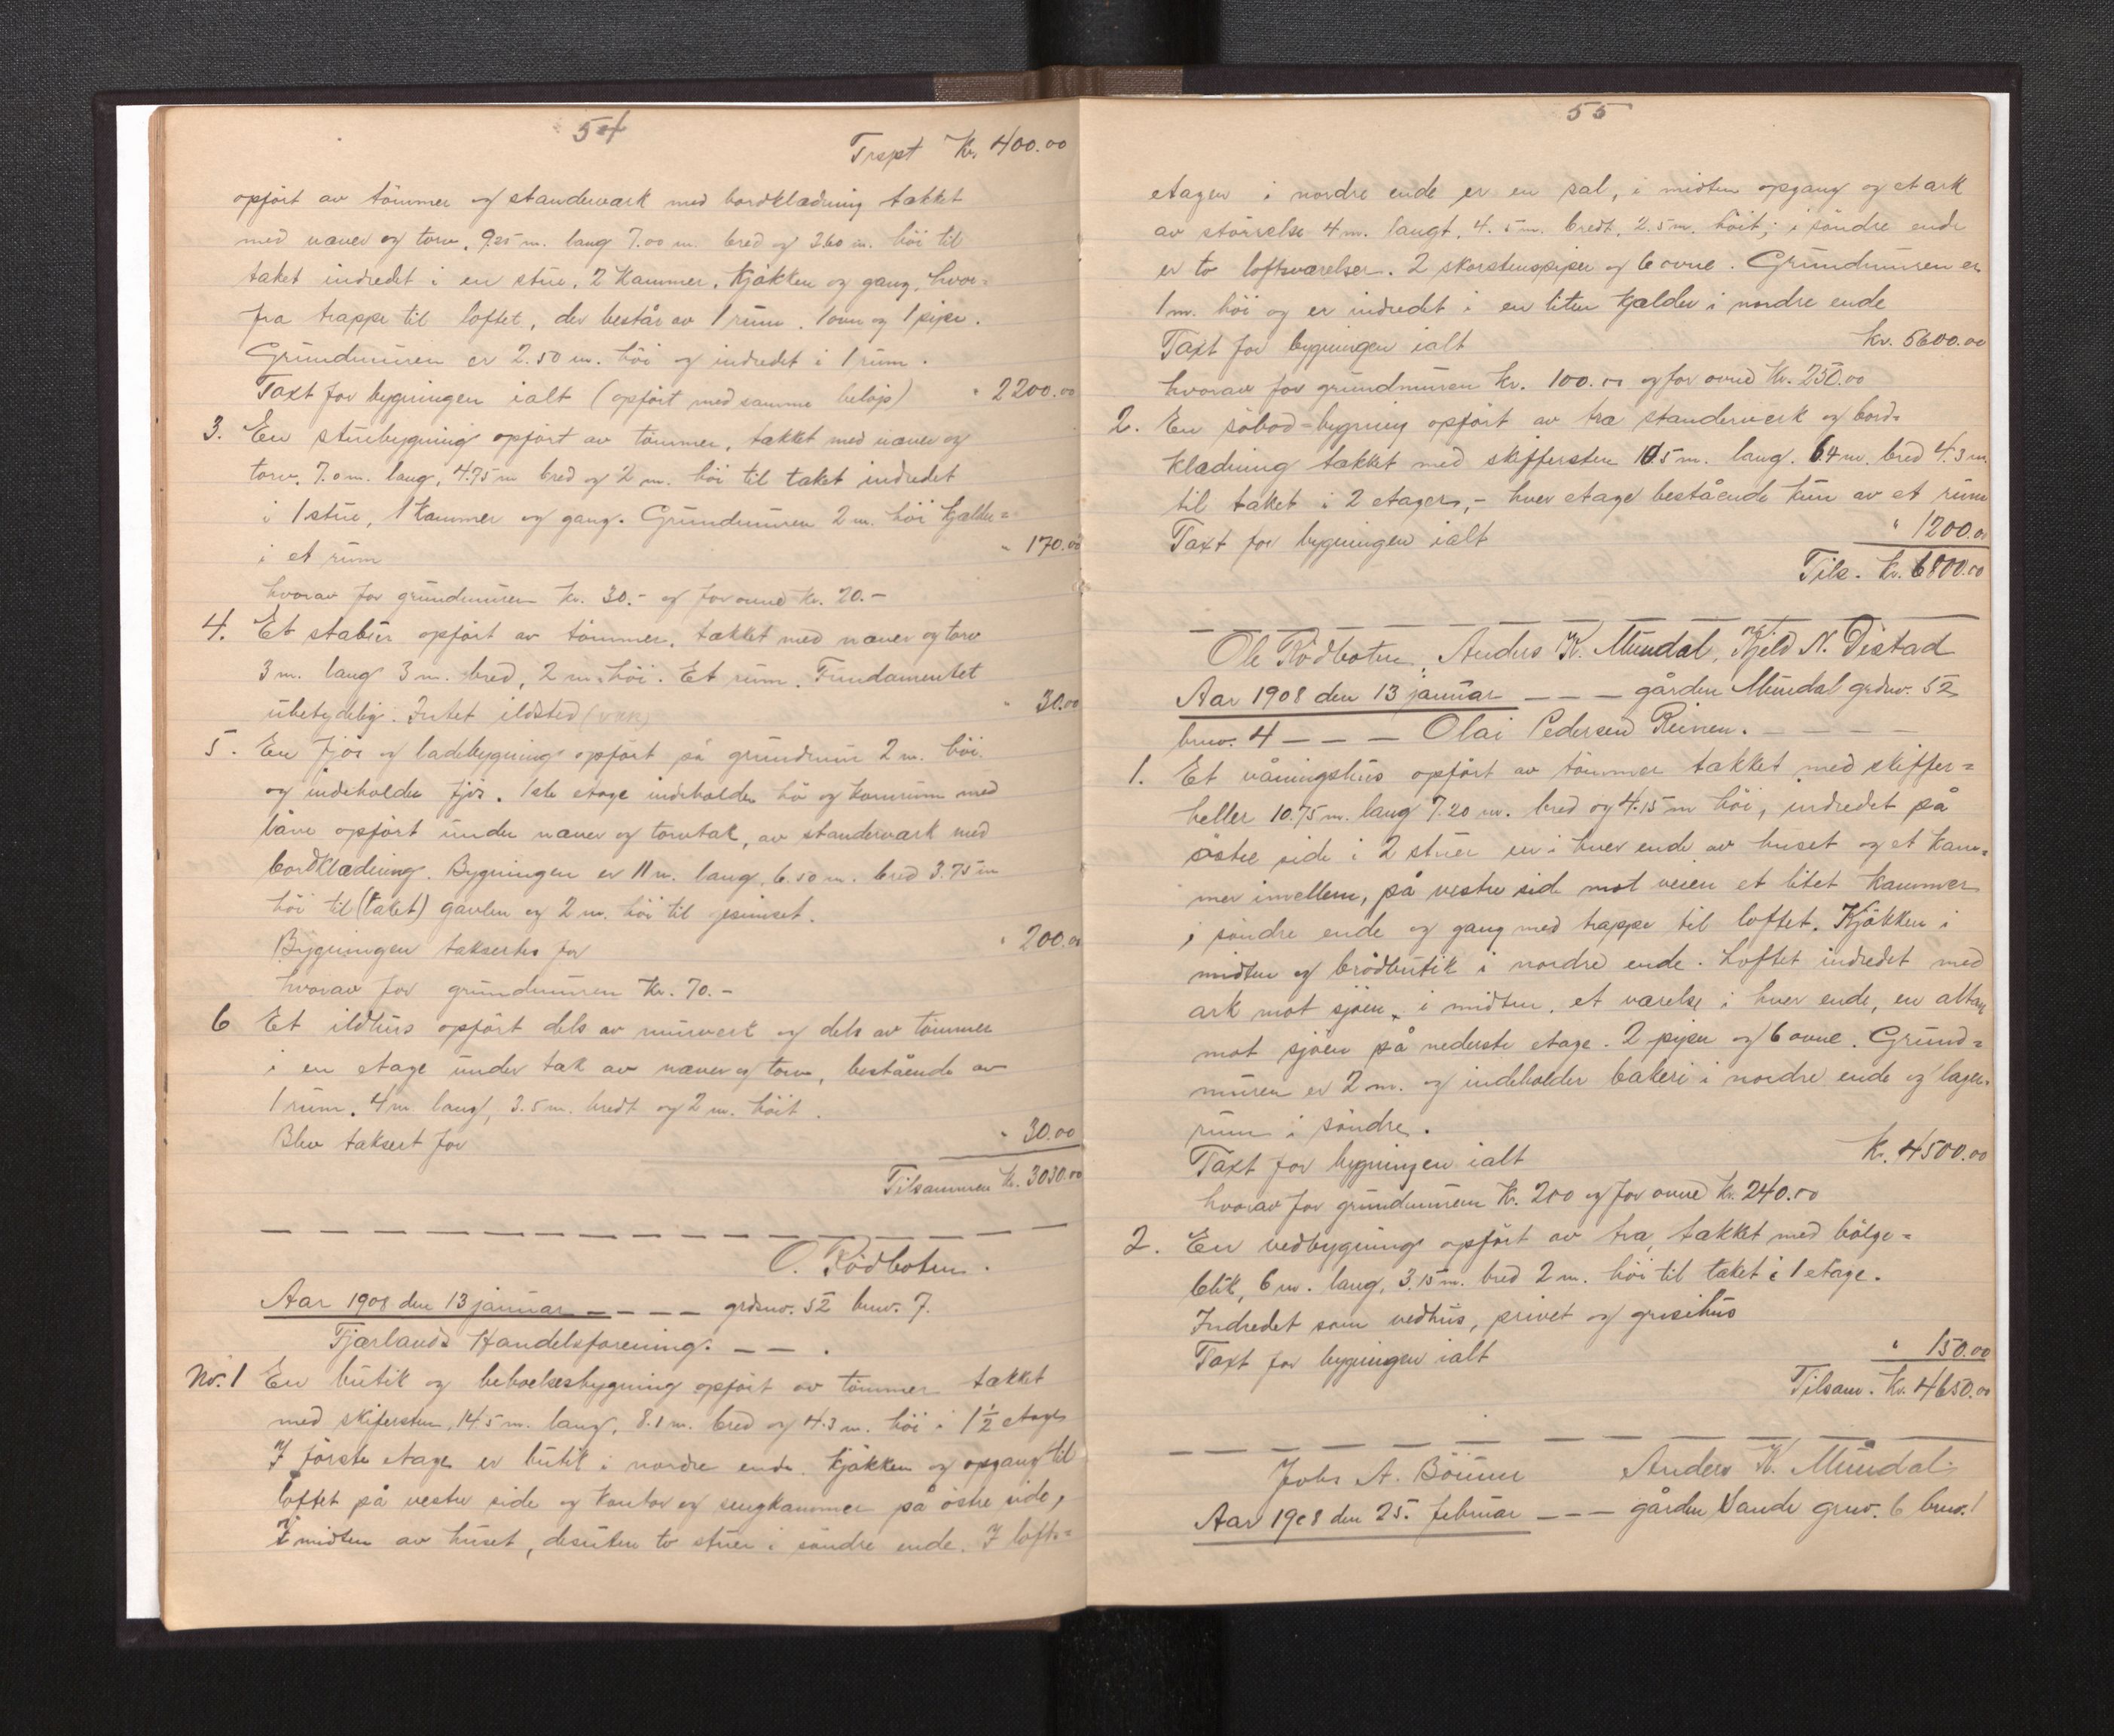 54
Trspt Kr. 400.00
opfört av tömmer og standerværk med bordklædning takket
med næver og torv, 9.25 m. lang 7.00 m. bred og 3.60 m. höi til
taket indredet i en stue, 2 kammer, kjökken og gang, hvor=
fra trappe til loftet, der består av 1 rum. 1 ovn og 1 pipe.
Grundmuren er 2.50 m. höi og indredet i 1 rum.
Taxt for bygningen ialt (opfört med samme belöp) " 2200.00
3. En stuebygning opfört av tömmer, takket med næver og
torv, 7.0 m. lang, 4.75 m bred og 2 m. höi til taket indredet
i 1 stue, 1 kammer og gang. Grundmuren 2 m. höi kjelder=
i et rum " 170.00
hvorav for grundmuren kr. 30.- og for ovne kr. 20.-
4. Et stabur opfört av tömmer, takket med næver og torv
3 m. lang 3 m. bred, 2 m. höi. Et rum. Fundamentet
ubetydelig. Intet ildsted " 30.00
5. En fjös og ladebygning opfört på grundmur 2 m. höi.
og indeholder fjös. 1ste etage indeholder hö og kornrum med
låve opfört under næver og torvtak, av standerværk med
bordklædning. Bygningen er 11 m. lang, 6.50 m. bred 3.75 m
höi til (taket) gavlen og 2 m. höi til gesimset.
Bygningen taksertes for " 200.00
hvorav for grundmuren Kr. 70.-
6 Et ildhus opfört dels av murverk og dels av tömmer
i en etage under tak av næver og torv, bestående av
1 rum. 4 m lang, 3.5 m. bredt og 2 m. höit.
Blev taksert for " 30.00
Tilsammen Kr. 3030.00
O. Rödbotn.
Aar 1908 den 13 januar - - - - grdsnv. 52 bnv. 7.
Fjærlands Handelsforening. - - .
Nr. 1 En butik og beboelsesbygning opfört av tömmer takket
med skifersten, 14.5 m. lang, 8.1 m. bred og 4.3 m. höi i 1½ etage
I förste etage er butik i nordre ende. Kjökken og opgang til
loftet på vestre side og kontor og sengkammer på östre side,
I midten av huset, desuten to stuer i söndre ende. I lofts=
55
etagen i nordre ende er en sal, i midten opgang og et ark
av störrelse 4 m. langt, 4.5 m. bredt, 2.5 m. höit; i söndre ende
er to loftsværelser. 2 skorstenspiper og 6 ovne. Grundmuren er
1 m. höi og er indredet i en liten kjælder i nordre ende
Taxt for bygningen ialt Kr. 5600.00
hvorav for grundmuren kr. 100.00 og for ovne Kr. 250.00
2. En söbod=bygning opfört av træ standerverk og bord=
klædning takket med skiffersten 10.5 m. lang. 6.4 m. bred 4.3 m.
til taket i 2 etager, - hver etage bestående kun av et rum
Taxt for bygningen ialt " 1200.00
Tils. Kr. 6800.00
Ole Rödbotn, Anders K. Mundal, Kjeld N. Distad
Aar 1908 den 13 januar - - - gården Mundal grdnv. 52
bnv. 4 - - - Olai Pedersen Reinen. - - - -
1. Et våningshus opfört av tömmer takket med skiffer=
heller 10.75 m. lang 7.20 m. bred og 4.15 m höi, indredet på
östre side i 2 stuer en i hver ende av huset og et kam=
mer imellem, på vestre side mot veien et litet kammer
i söndre ende og gang med trappe til loftet. Kjökken i
midten og brödbutik i nordre ende. Loftet indredet med
ark mot sjöen, i midten, et værelse i hver ende, en altan
mot sjöen på nederste etage. 2 piper og 6 ovne. Grund=
muren er 2 m. og indeholder bakeri i nordre ende og lager=
rum i söndre.
Taxt for bygningen ialt Kr. 4500.00
hvorav for grundmuren Kr. 200 og for ovne Kr. 240.00
2. En vedbygning opfört av træ, takket med bölge=
blik, 6 m. lang, 3.15 m. bred 2 m. höi til taket i 1 etage.
Indredet som vedhus, privet og grisehus
Taxt for bygningen ialt " 150.00
Tilsam. Kr. 4650.00
Johs A. Böium Anders K. Mundal.
Aar 1908 den 25. februar - - - gården Vande grnv. 6 bnv. 1